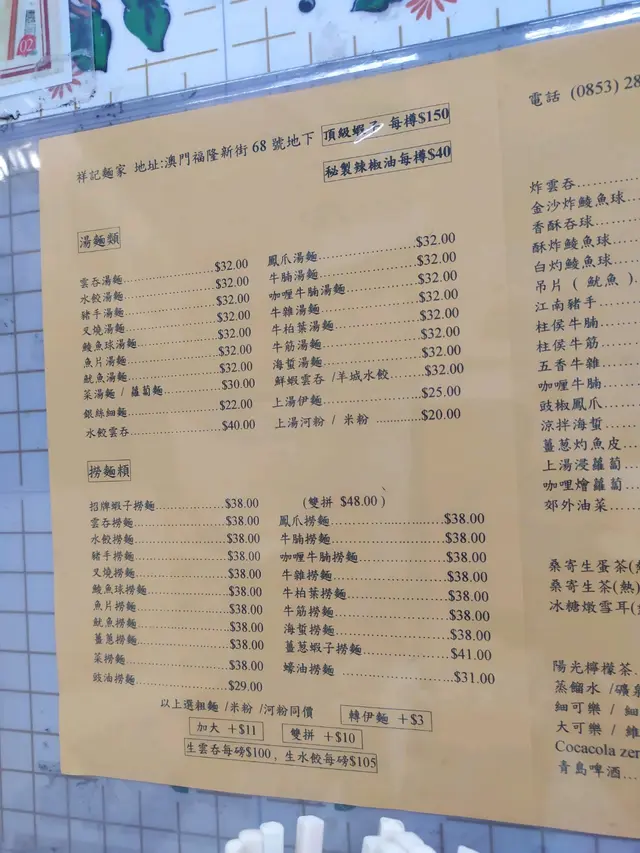 02
祥記麵家 地址:澳門福隆新街 68 號地下
頂級蝦子 每樽$150
秘製辣椒油每樽$40
湯麵類
雲吞湯麵 $32.00
水餃湯麵 $32.00
豬手湯麵 $32.00
叉燒湯麵 $32.00
鯪魚球湯麵 $32.00
魚片湯麵 $32.00
魷魚湯麵 $32.00
菜湯麵 / 蘿蔔麵 $30.00
銀絲細麵 $22.00
水餃雲吞 $40.00
鳳爪湯麵 $32.00
牛腩湯麵 $32.00
咖喱牛腩湯麵 $32.00
牛雜湯麵 $32.00
牛柏葉湯麵 $32.00
牛筋湯麵 $32.00
海蜇湯麵 $32.00
鮮蝦雲吞 /羊城水餃 $32.00
上湯伊麵 $25.00
上湯河粉 / 米粉 $20.00
撈麵類
招牌蝦子撈麵 $38.00
雲吞撈麵 $38.00
水餃撈麵 $38.00
豬手撈麵 $38.00
叉燒撈麵 $38.00
鯪魚球撈麵 $38.00
魚片撈麵 $38.00
魷魚撈麵 $38.00
薑蔥撈麵 $38.00
菜撈麵 $38.00
豉油撈麵 $29.00
(雙拼 $48.00 )
鳳爪撈麵 $38.00
牛腩撈麵 $38.00
咖喱牛腩撈麵 $38.00
牛雜撈麵 $38.00
牛柏葉撈麵 $38.00
牛筋撈麵 $38.00
海蜇撈麵 $38.00
薑蔥蝦子撈麵 $41.00
蠔油撈麵 $31.00
以上選粗麵 /米粉 /河粉同價
轉伊麵 +$3
加大 +$11
雙拼 +$10
生雲吞每磅$100 , 生水餃每磅$105
電話 (0853) 28
炸雲吞
金沙炸鯪魚球
香酥吞球
酥炸鯪魚球
白灼鯪魚球
吊片 ( 魷魚 )
江南豬手
柱侯牛腩
柱侯牛筋
五香牛雜
咖喱牛腩
豉椒鳳爪
涼拌海蜇
薑蔥灼魚皮
上湯浸蘿蔔
咖哩燴蘿蔔
郊外油菜
桑寄生蛋茶(熱
桑寄生茶(熱)
冰糖燉雪耳(
陽光檸檬茶
蒸餾水 /礦泉
細可樂 / 細
大可樂 / 維
Cocacola zer
青島啤酒